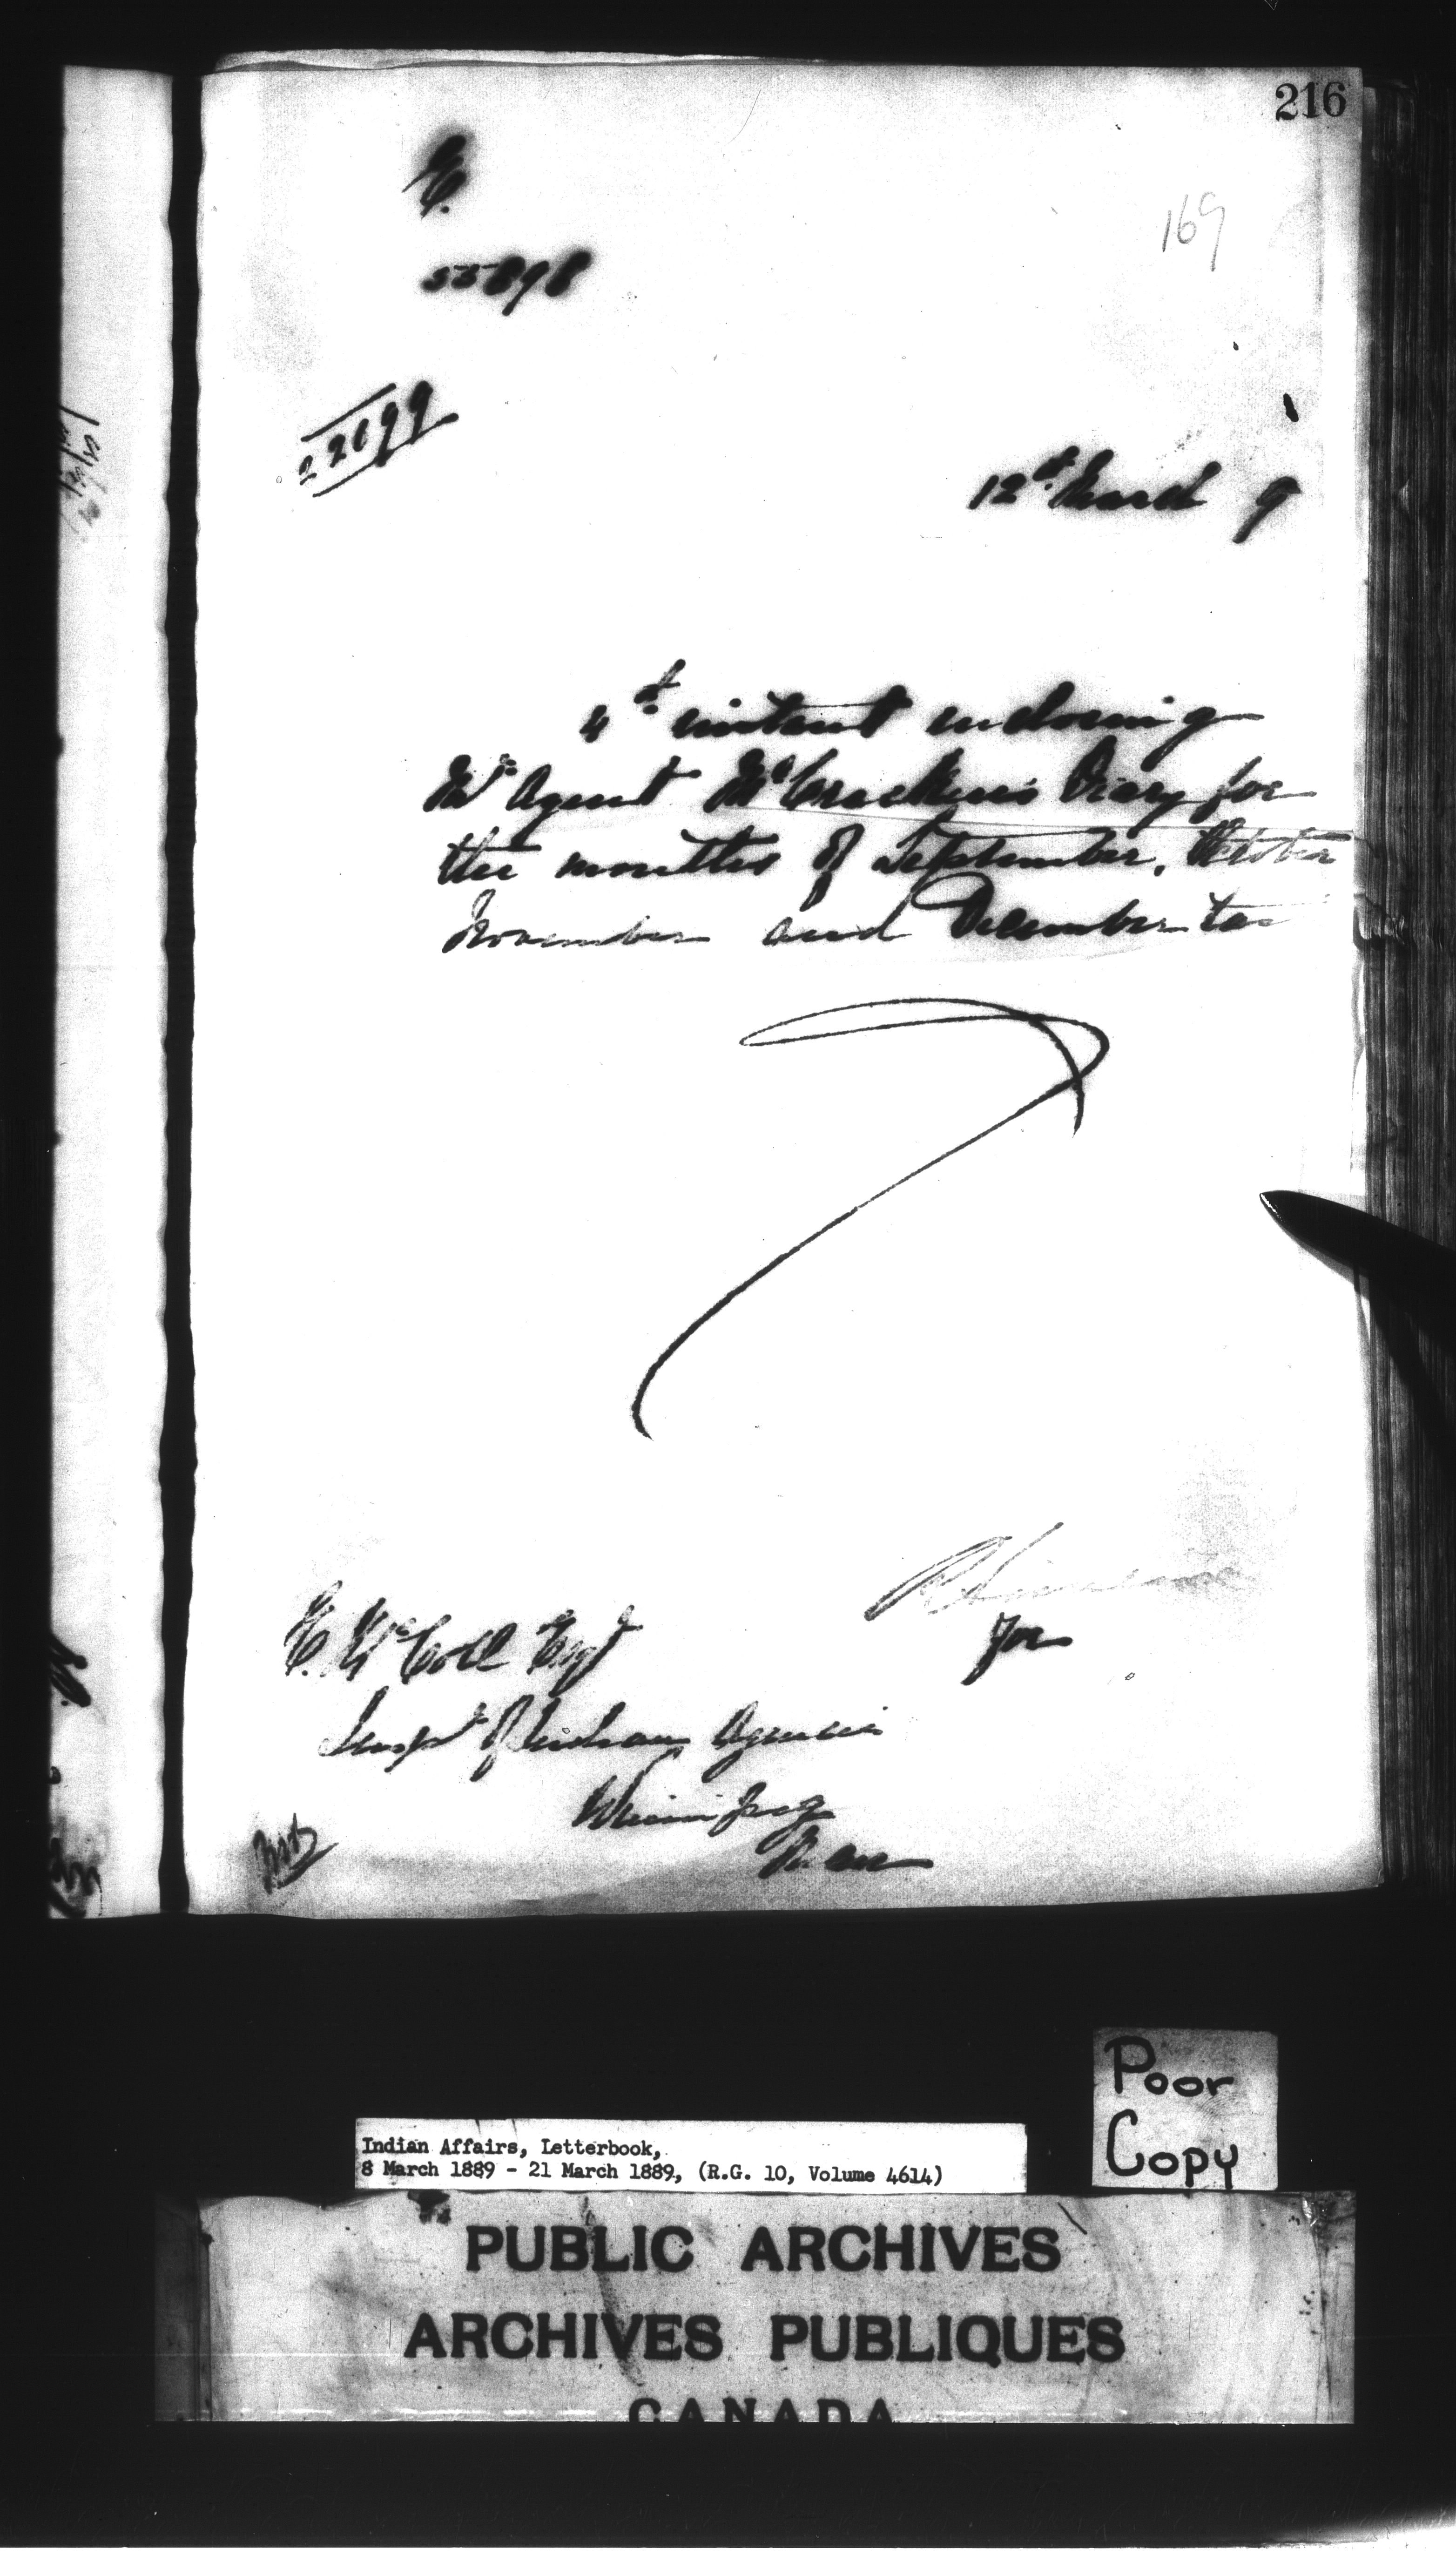 216
169
E.
55898
22099
12th March 9
4th instant enclosing
Mr Agent McCracken's Diary for
the months of September, October
November and December
for
E. McColl Esqr
Inspr of Indian Agencies
Winnipeg
Man
Poor
Copy
Indian Affairs, Letterbook,
8 March 1889 - 21 March 1889, (R.G. 10, Volume 4614)
PUBLIC ARCHIVES
ARCHIVES PUBLIQUES
CANADA